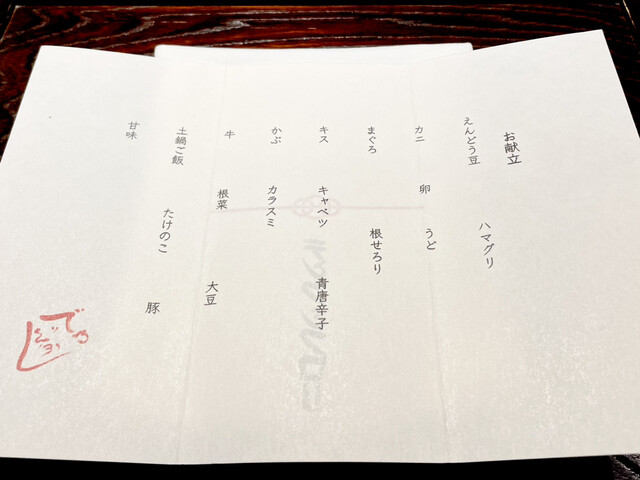 お献立
えんどう豆 ハマグリ
カニ 卵 うど
まぐろ 根せろり
キス キャベツ 青唐辛子
かぶ カラスミ
牛 根菜 大豆
土鍋ご飯 たけのこ 豚
甘味